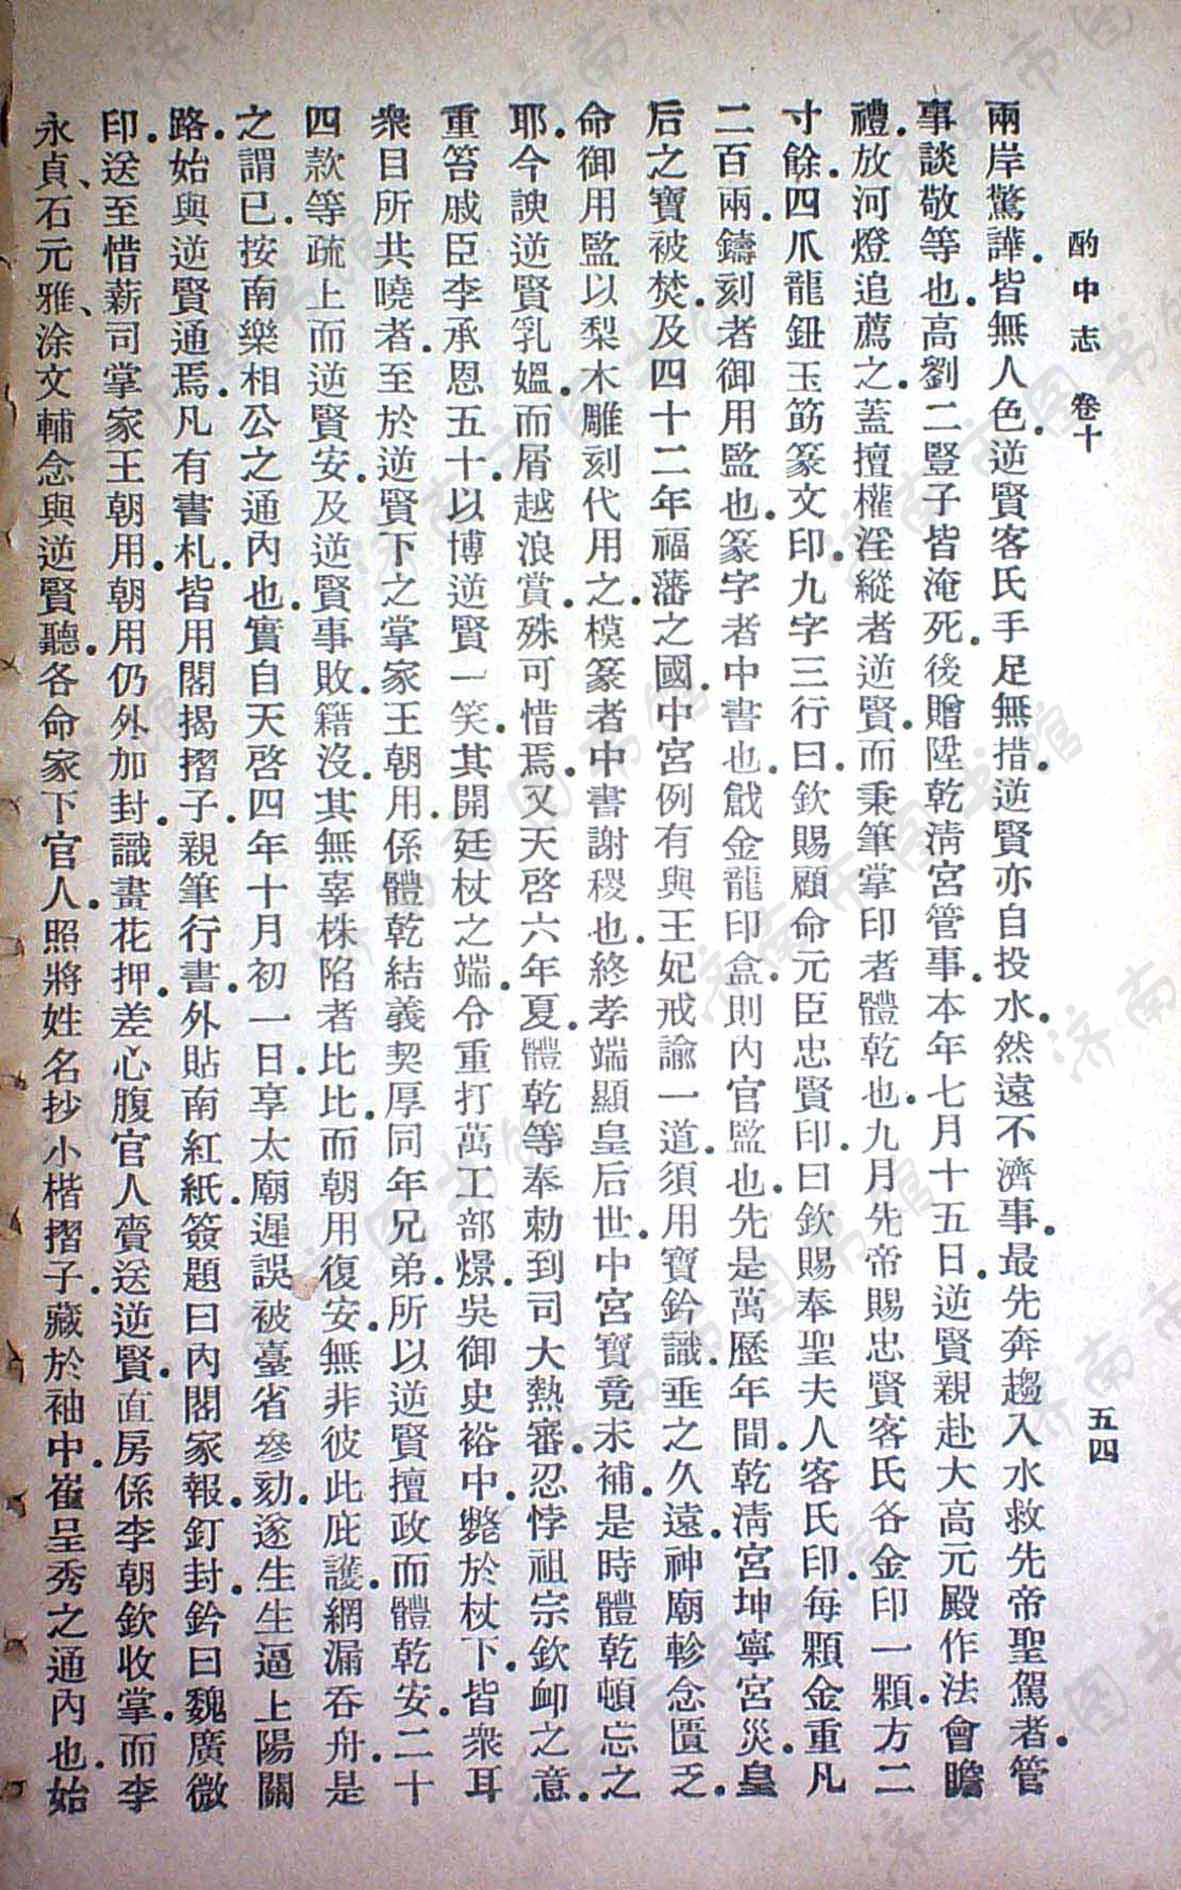 酌中志　卷十　五四
兩岸驚譁。皆無人色。逆賢客氏手足無措。逆賢亦自投水。然遠不濟事。最先奔趨入水救先帝聖駕者。管
事談敬等也。高劉二豎子皆淹死。後贈陞乾清宮管事。本年七月十五日。逆賢親赴大高元殿作法會瞻
禮。放河燈追薦之。蓋擅權淫縱者逆賢。而秉筆掌印者體乾也。九月先帝賜忠賢客氏各金印一顆。方二
寸餘。四爪龍鈕玉筯篆文印。九字三行曰。欽賜顧命元臣忠賢印。曰欽賜奉聖夫人客氏印。每顆金重凡
二百兩。鑄刻者御用監也。篆字者中書也。戧金龍印盒則內官監也。先是萬歷年間。乾淸宮坤寧宮災。皇
后之寶被焚。及四十二年福藩之國。中宮例有與王妃戒諭一道。須用寶鈐識。垂之久遠。神廟軫念匱乏。
命御用監以梨木雕刻代用之。模篆者中書謝稷也。終孝端顯皇后世。中宮寶竟未補。是時體乾頓忘之
耶。今諛逆賢乳媼。而屑越浪賞。殊可惜焉。又天啓六年夏。體乾等奉勅到司大熱審。忍悖祖宗欽卹之意。
重笞戚臣李承恩五十。以博逆賢一笑。其開廷杖之端。令重打萬工部燝吳御史裕中。斃於杖下。皆衆耳
衆目所共曉者。至於逆賢下之掌家王朝用。係體乾結義契厚同年兄弟。所以逆賢擅政而體乾安。二十
四款等疏上而逆賢安。及逆賢事敗。籍沒。其無辜株陷者比比。而朝用復安。無非彼此庇護。網漏吞舟。是
之謂已。按南樂相公之通內也。實自天啓四年十月初一日。享太廟遲誤被臺省參劾。遂生生逼上陽關
路。始與逆賢通焉。凡有書札。皆用閣揭摺子。親筆行書。外貼南紅紙。簽題曰內閣家報。釘封。鈐曰魏廣微
印。送至惜薪司掌家王朝用。朝用仍外加封。識畫花押。差心腹官人賫送逆賢。直房係李朝欽收掌。而李
永貞、石元雅、涂文輔念與逆賢聽。各命家下官人。照將姓名抄小楷摺子。藏於袖中。崔呈秀之通內也。始